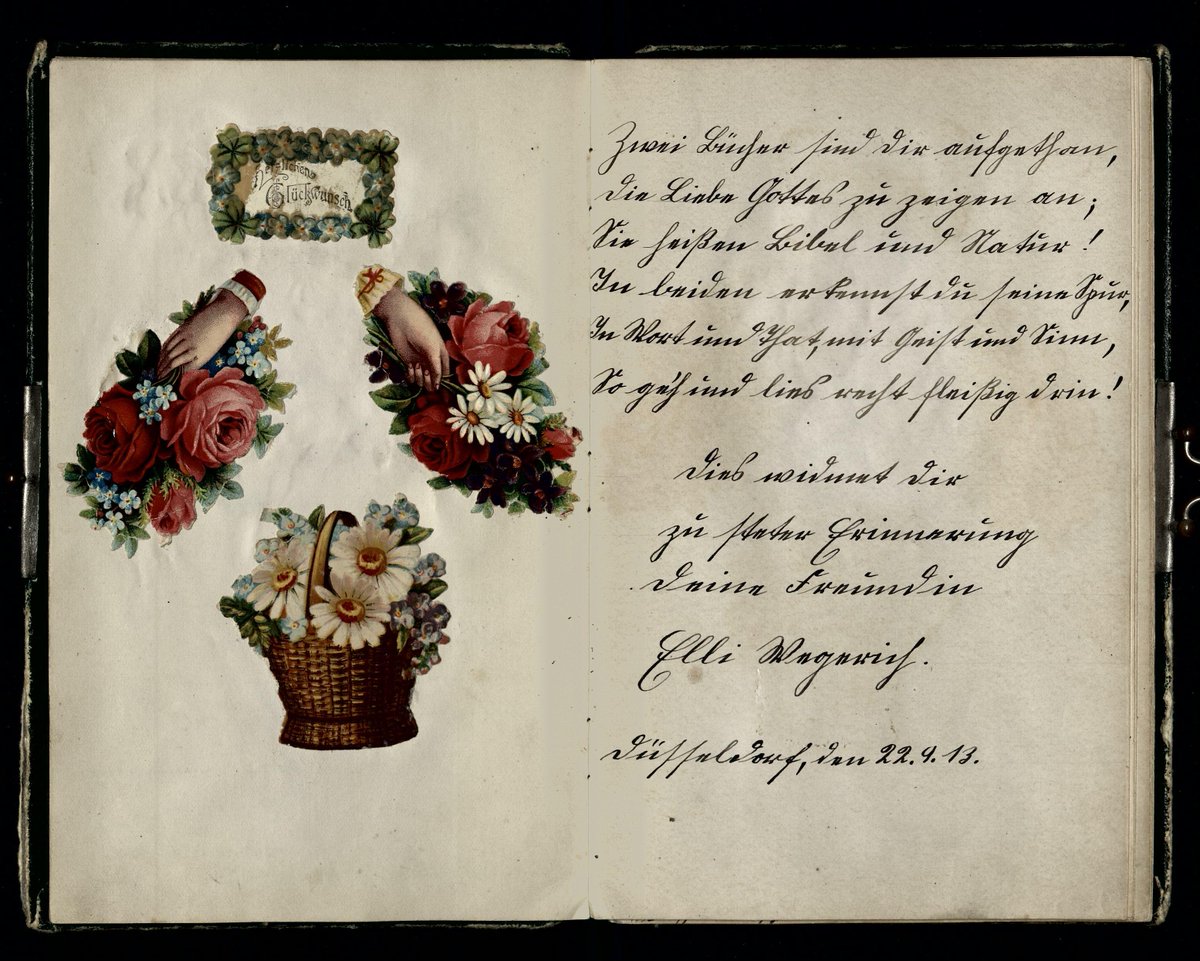 Herzlichen
Glückwunsch
Zwei Bücher sind dir aufgethan,
die Liebe Gottes zu zeigen an;
Sie heißen Bibel und Natur!
In beiden erkennst du seine Spur,
In Wort und That, mit Geist und Sinn,
So geh und lies recht fleißig drin!
Dies widmet dir
zu steter Erinnerung
deine Freundin
Elli Wegerich.
Düsseldorf, den 22.9.13.